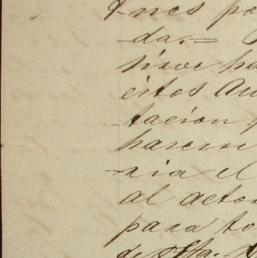 nes po
da.=
sirve ha
estos Au
tacion
hacerse
ria el
al actor
para to
de dha.